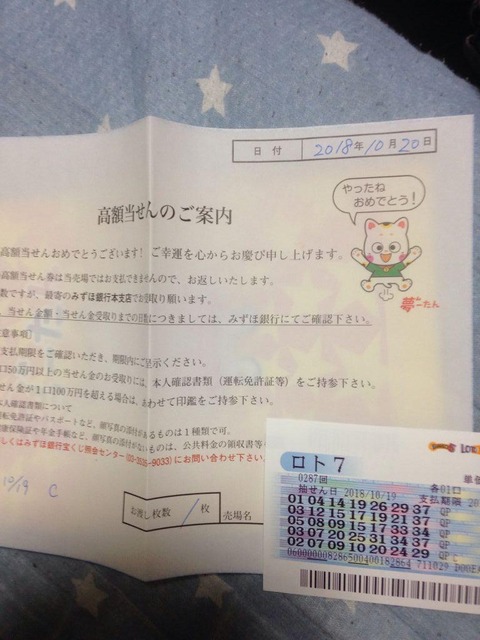 日 付 2018年10月20日
やったね
おめでとう!
高額当せんのご案内
高額当せんおめでとうございます! ご幸運を心からお慶び申し上げます。
高額当せん券は当売場ではお支払できませんので、お返しいたします。
数ですが、最寄のみずほ銀行本支店でお受取り願います。
、当せん金額・当せん金受取りまでの日数につきましては、みずほ銀行にてご確認下さい。
意事項】
支払期限をご確認いただき、期限内にご呈示ください。
口50万円以上の当せん金のお受取りには、本人確認書類(運転免許証等)をご持参下さい。
せん金が1口100万円を超える場合は、あわせて印鑑をご持参下さい。
本人確認書類について
転免許証やパスポートなど、顔写真の添付があるものは1種類で可。
健康保険証や年金手帳など、顔写真の添付がないものは、公共料金の領収書等
しくはみずほ銀行宝くじ照会センター
にお問い合わせ下さい。
10/19 C
お渡し枚数 1枚 売場名
夢二たん
ロト7
0287回 各01口
抽せん日 2018/10/19 支払期限
01 04 14 19 26 29 37 QP
03 12 15 17 19 21 37 QP
05 08 09 15 17 33 34 QP
03 07 20 25 31 34 37 QP
02 07 09 10 20 24 29 QP